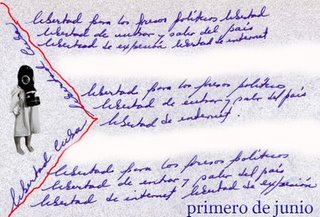 libertad para los presos políticos libertad
libertad de entrar y salir del país
libertad de expreción libertad de internet
libertad Cuba
libertad para los presos políticos
libertad de entrar y salir del país
libertad de internet.
libertad Cuba
libertad para los presos políticos
libertad de entrar y salir del país
libertad de internet libertad de expreción
primero de junio